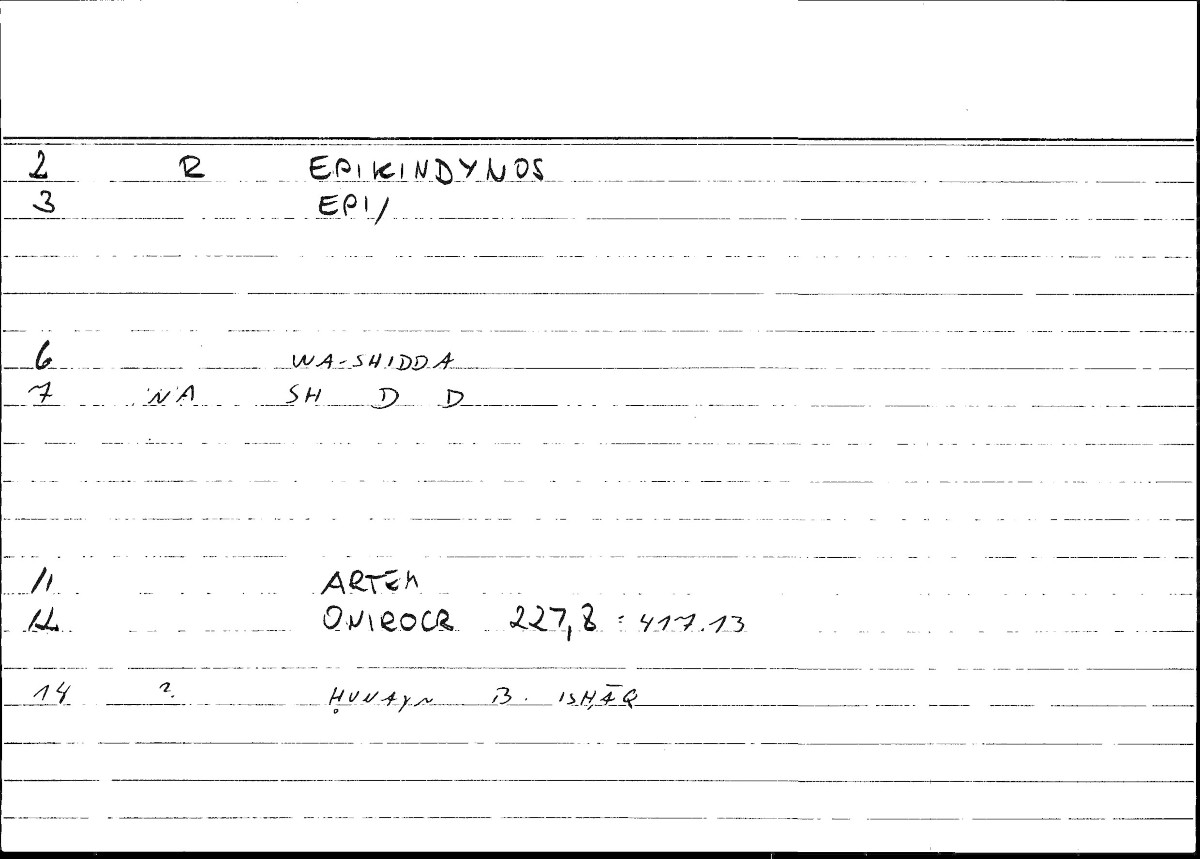 2 R EPIKINDYNOS
3 EPI/
6 WA-SHIDDA
7 WA SH D D
11 ARTEM
12 ONIROCR 227,8 : 417.13
14 2. ḤUNAYN B. ISḤĀQ